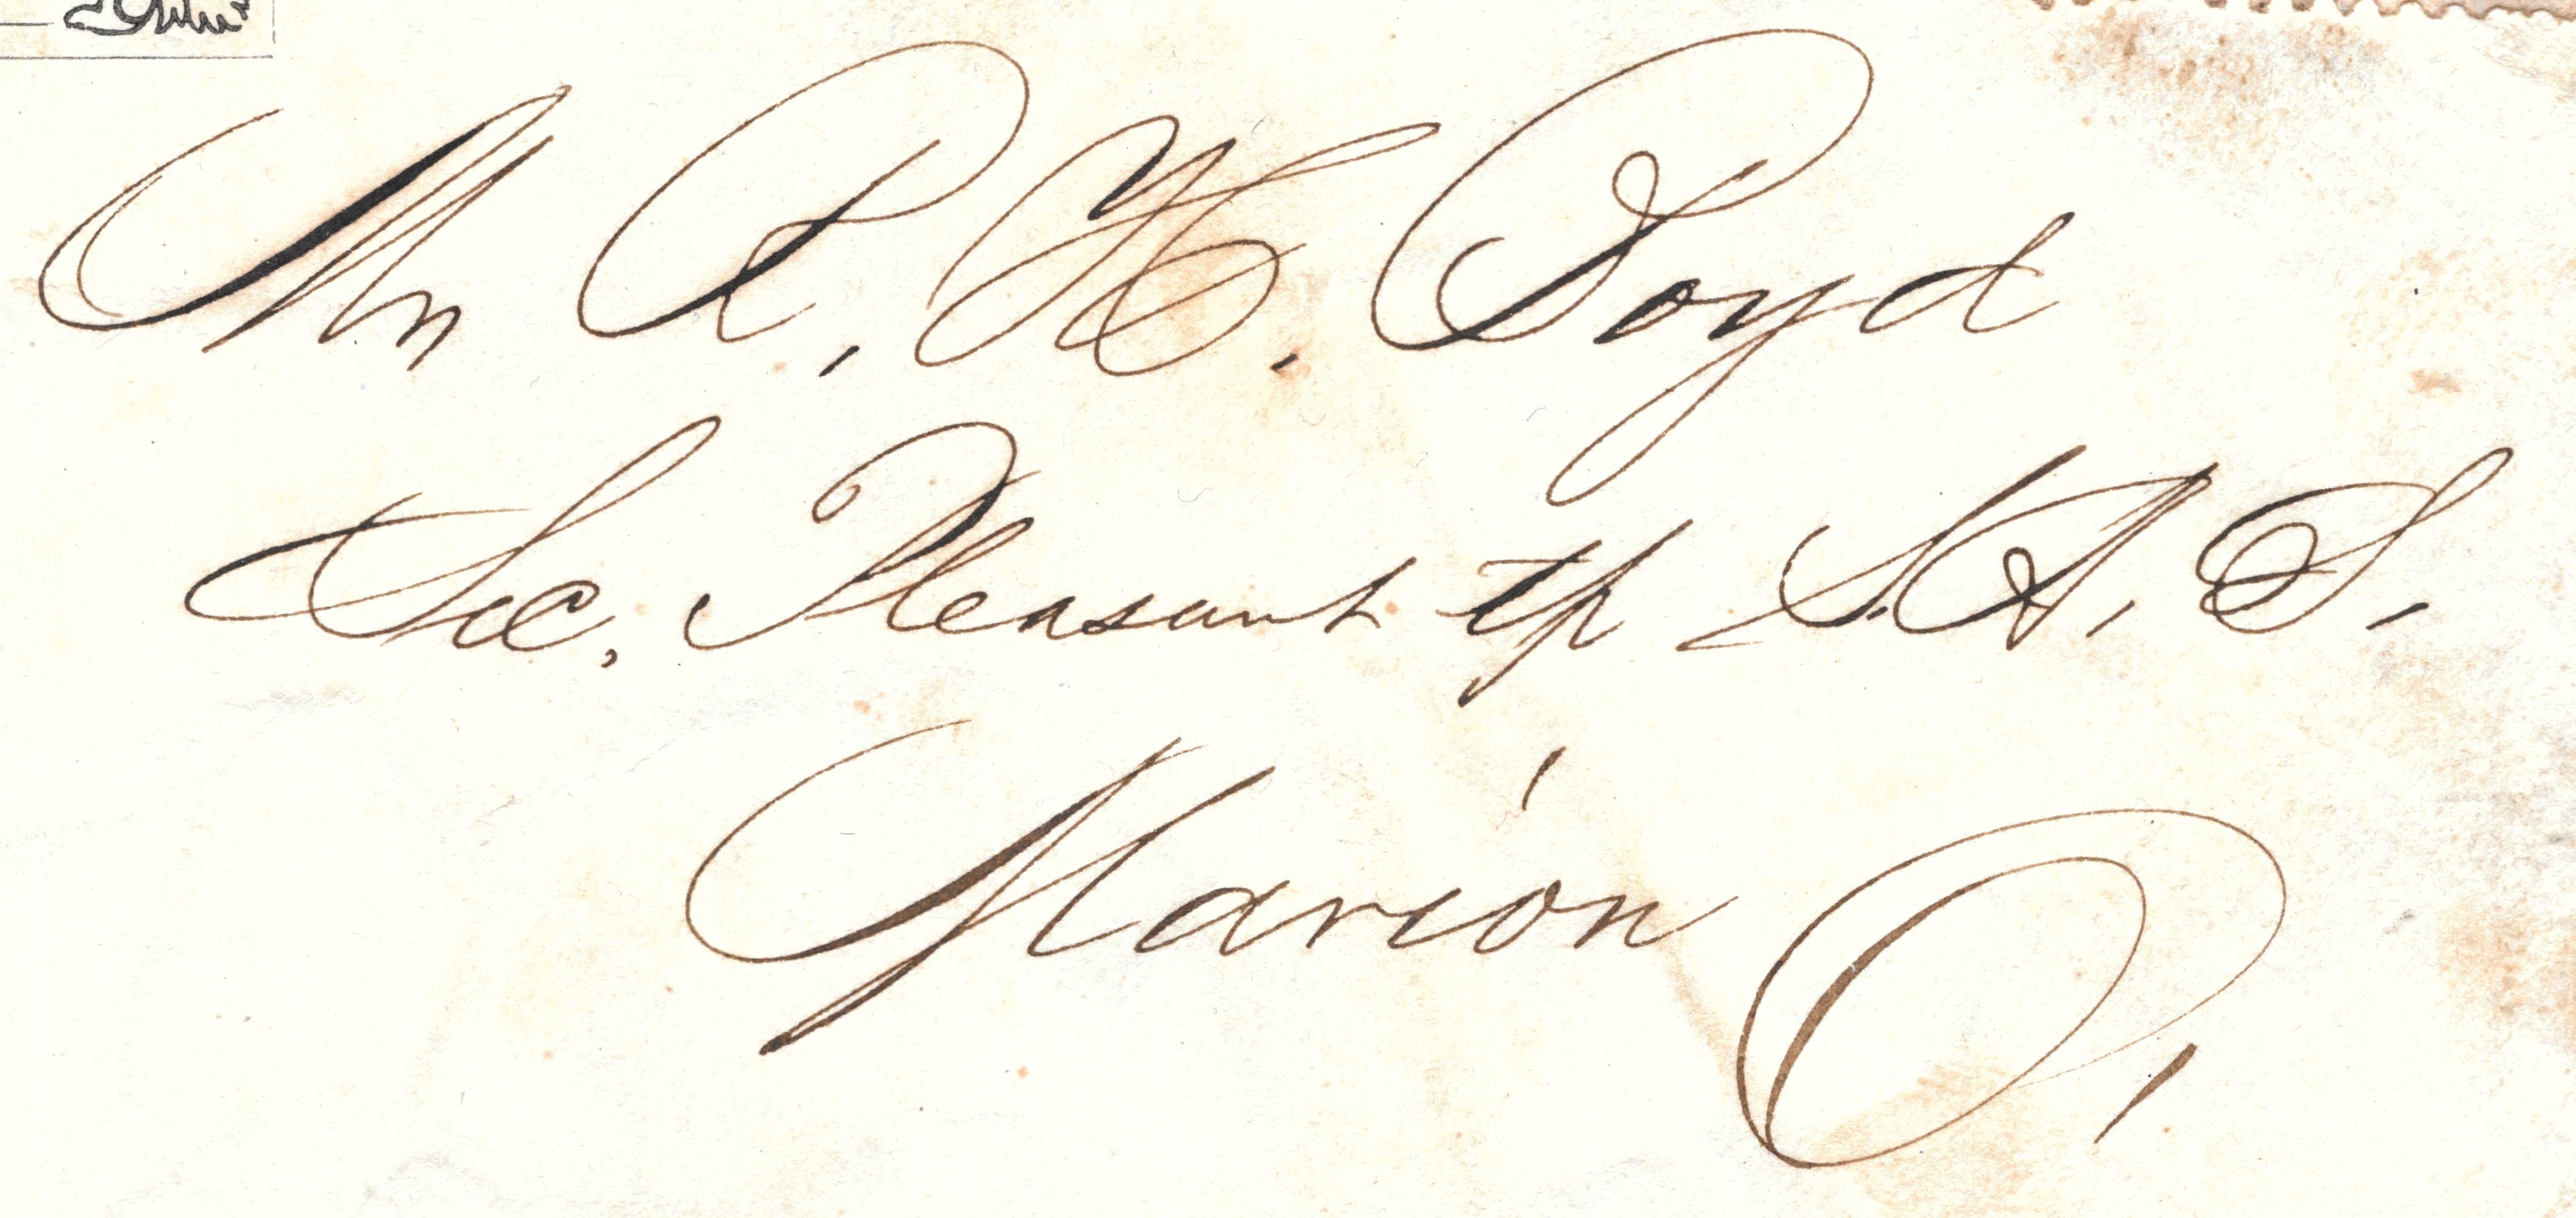 Mr R. H. Boyd
Sec. Pleasant tp S.A.S.
Marion O.